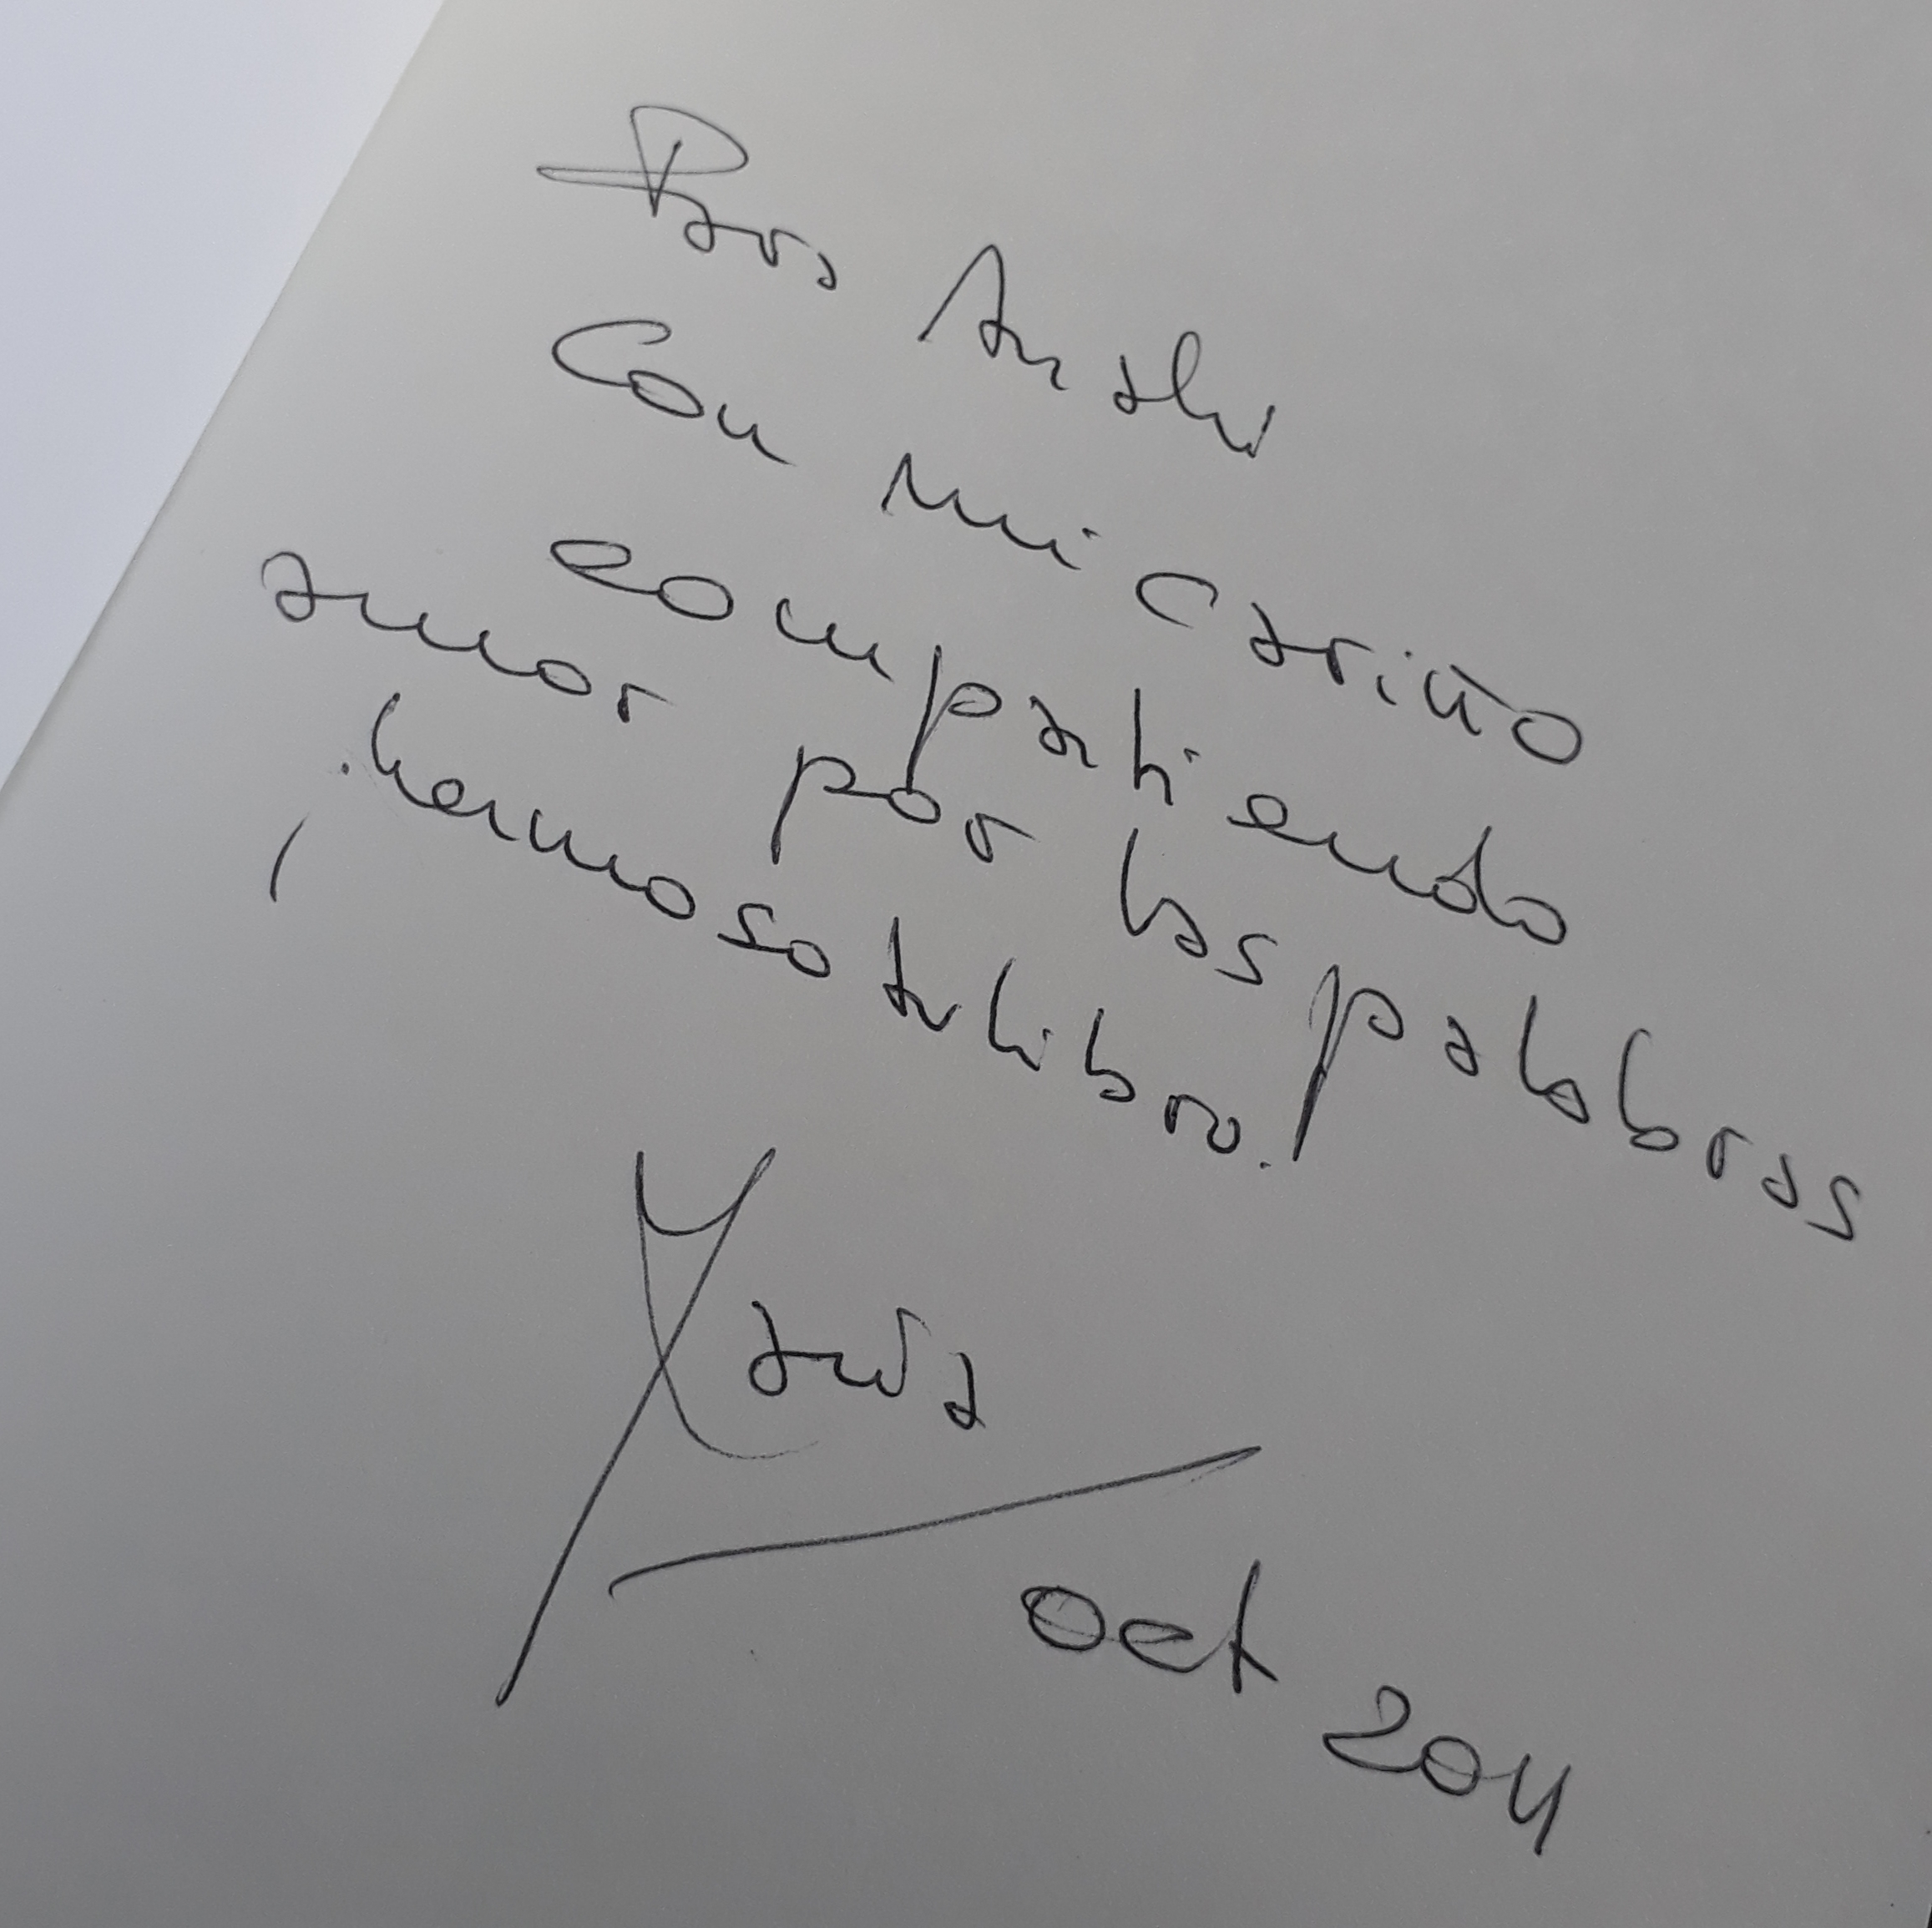 Para Anahi
Con mi cariño
compartiendo
amor por las palabras
¡hermoso tu libro!
María
oct 2011